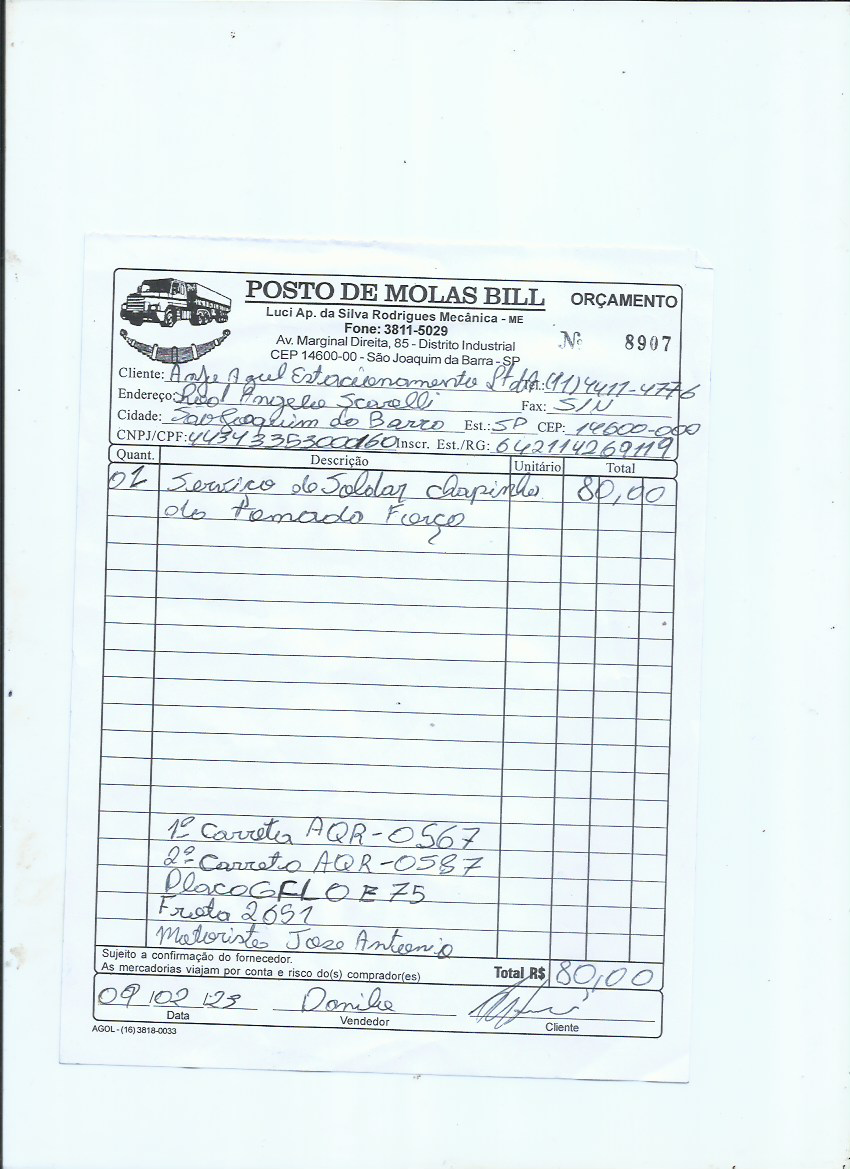 POSTO DE MOLAS BILL ORÇAMENTO
Luci Ap. da Silva Rodrigues Mecânica - ME
Fone: 3811-5029
Av. Marginal Direita, 85 - Distrito Industrial
Nº 8907
CEP 14600-00 - São Joaquim da Barra - SP
Cliente: Anfe Azul Estacionamento Ltda Tel.: (11) 4411-4776
Endereço: Rod Angelo Scarelli Fax: S/N
Cidade: São Joaquim da Barra Est.: SP CEP: 14600-000
CNPJ/CPF: 44343353000160 Inscr. Est./RG: 642114269119
Quant. Descrição Unitário Total
01 Serviço de Soldar chapinha 80,00
da Tomada Força
1º Carreta AQR-0567
2º Carreta AQR-0587
Placa GFL0E75
Frota 2651
Motorista Jose Antonio
Sujeito a confirmação do fornecedor.
As mercadorias viajam por conta e risco do(s) comprador(es) Total R$ 80,00
09/02/23
Data Vendedor Cliente
AGOL - (16) 3818-0033